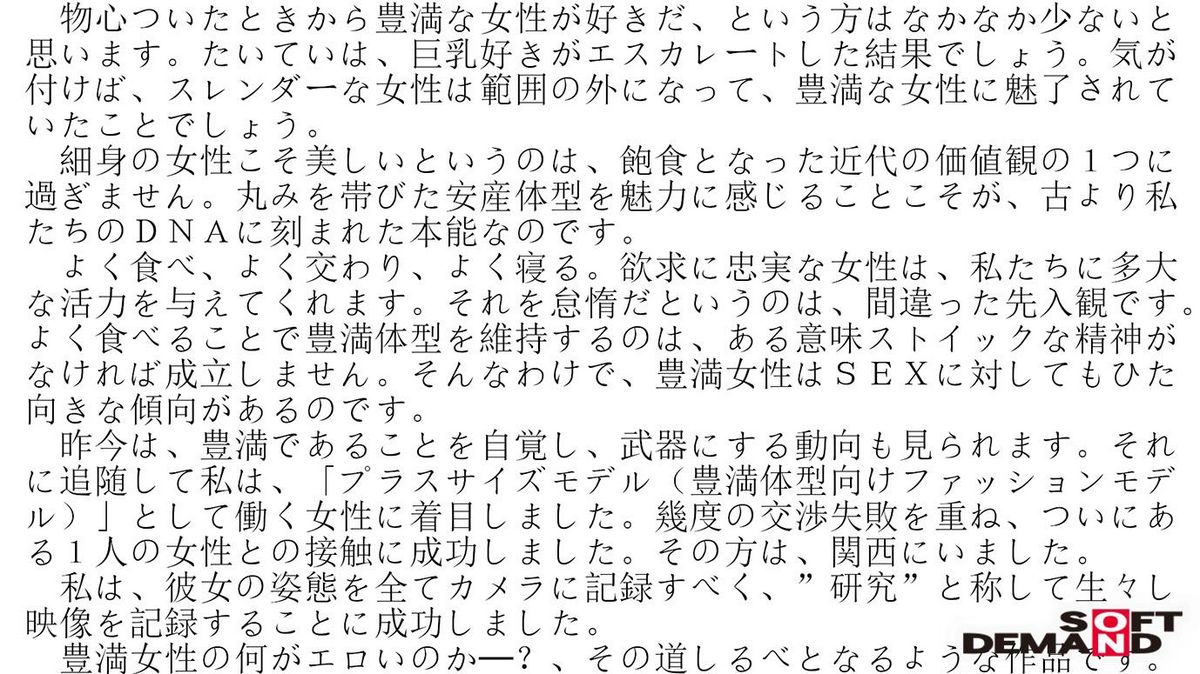 物心ついたときから豊満な女性が好きだ、という方はなかなか少ないと
思います。たいていは、巨乳好きがエスカレートした結果でしょう。気が
付けば、スレンダーな女性は範囲の外になって、豊満な女性に魅了されて
いたことでしょう。
細身の女性こそ美しいというのは、飽食となった近代の価値観の１つに
過ぎません。丸みを帯びた安産体型を魅力に感じることこそが、古より私
たちのＤＮＡに刻まれた本能なのです。
よく食べ、よく交わり、よく寝る。欲求に忠実な女性は、私たちに多大
な活力を与えてくれます。それを怠惰だというのは、間違った先入観です。
よく食べることで豊満体型を維持するのは、ある意味ストイックな精神が
なければ成立しません。そんなわけで、豊満女性はＳＥＸに対してもひた
向きな傾向があるのです。
昨今は、豊満であることを自覚し、武器にする動向も見られます。それ
に追随して私は、「プラスサイズモデル（豊満体型向けファッションモデ
ル）」として働く女性に着目しました。幾度の交渉失敗を重ね、ついにあ
る１人の女性との接触に成功しました。その方は、関西にいました。
私は、彼女の姿態を全てカメラに記録すべく、”研究”と称して生々し
映像を記録することに成功しました。
豊満女性の何がエロいのか―？、その道しるべとなるような作品です。
SOFT
DEMAND